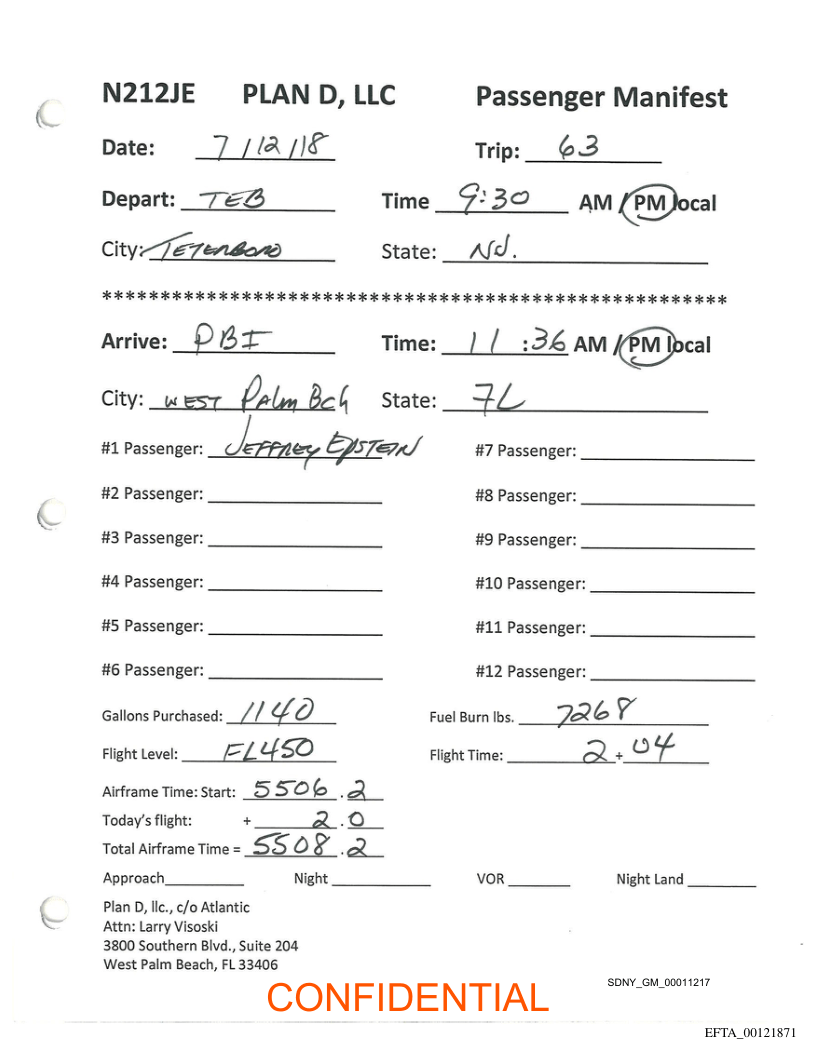 N212JE PLAN D, LLC Passenger Manifest
Date: 7/12/18 Trip: 63
Depart: TEB Time 9:30 AM / PM local
City: TETERBORO State: NJ.
*****************************************************
Arrive: PBI Time: 11:36 AM / PM local
City: WEST PALM Bch State: FL
#1 Passenger: JEFFREY EPSTEIN #7 Passenger:
#2 Passenger: #8 Passenger:
#3 Passenger: #9 Passenger:
#4 Passenger: #10 Passenger:
#5 Passenger: #11 Passenger:
#6 Passenger: #12 Passenger:
Gallons Purchased: 1140 Fuel Burn lbs. 7268
Flight Level: FL450 Flight Time: 2 + 04
Airframe Time: Start: 5506.2
Today's flight: + 2.0
Total Airframe Time = 5508.2
Approach Night VOR Night Land
Plan D, llc., c/o Atlantic
Attn: Larry Visoski
3800 Southern Blvd., Suite 204
West Palm Beach, FL 33406
SDNY_GM_00011217
CONFIDENTIAL
EFTA_00121871